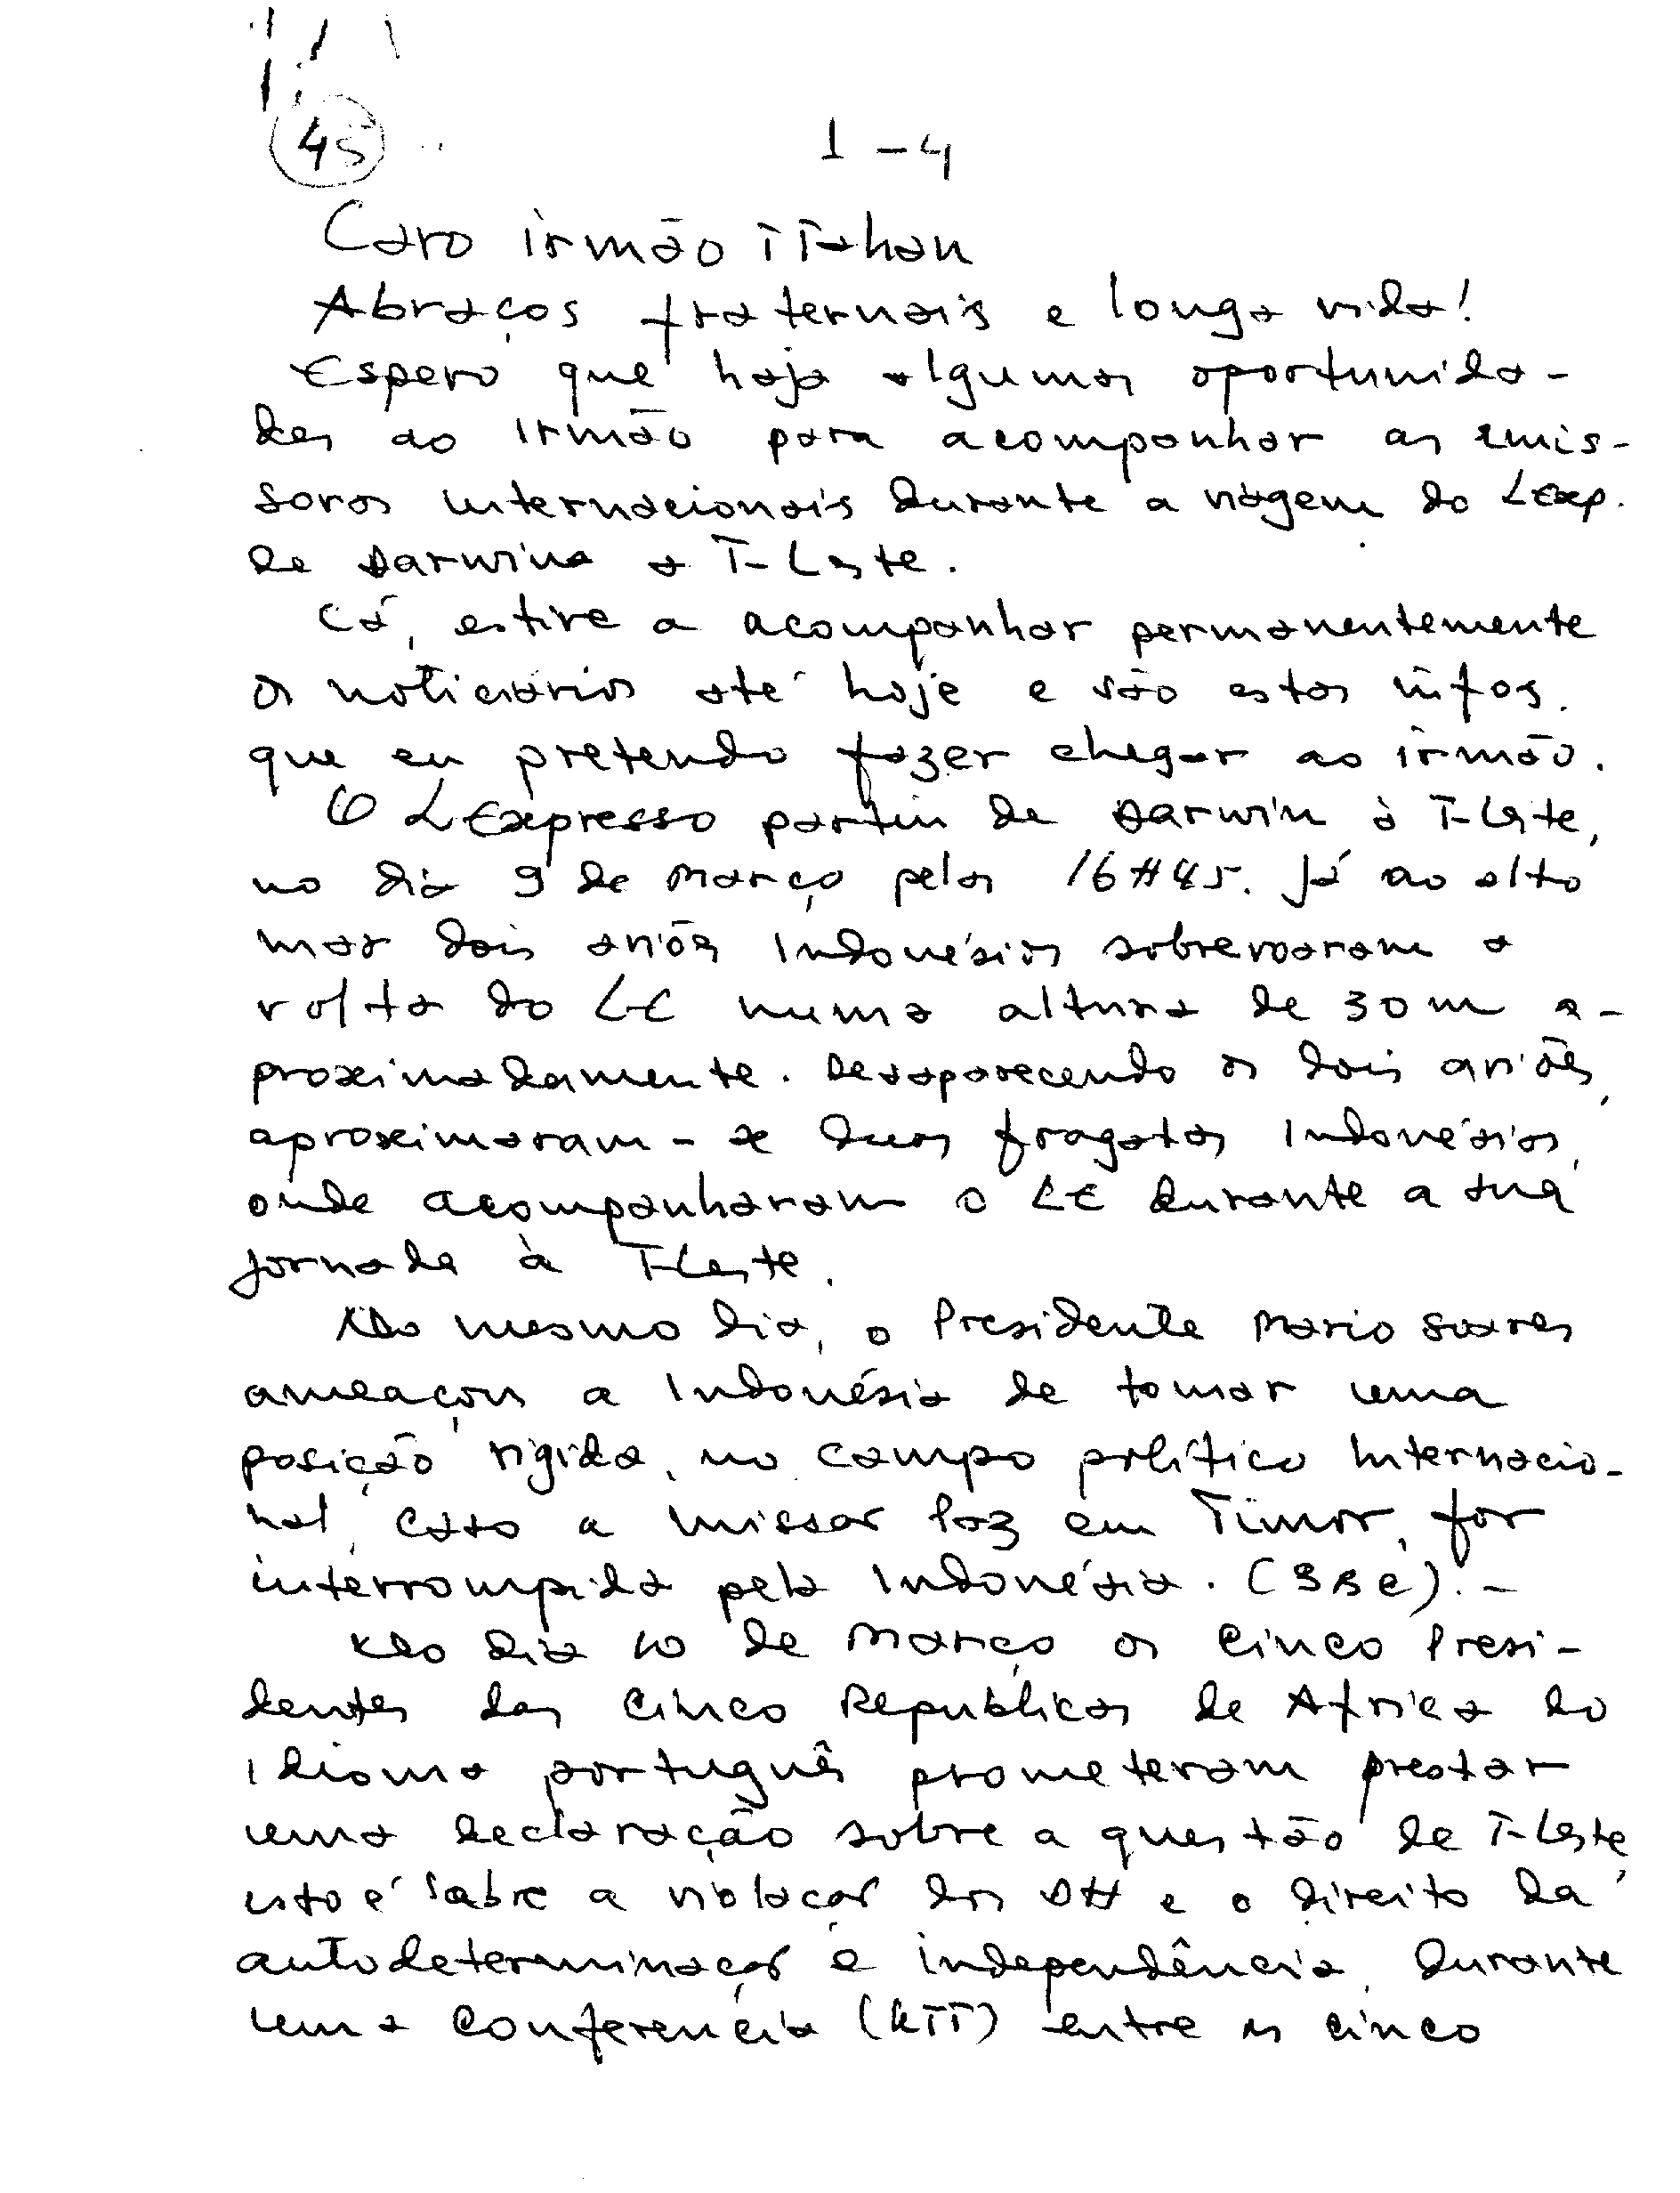 45
1-4
Caro irmão TTahan
Abraços fraternais e longa vida!
Espero que haja algumas oportunida-
des ao Irmão para acompanhar as emis-
soras internacionais durante a viagem do LExp.
de Darwina a T-Leste.
Cá, estive a acompanhar permanentemente
os noticiários até hoje e são estas infos.
que eu pretendo fazer chegar ao irmão.
O LExpresso partiu de Darwin à T-Leste,
no dia 9 de Março pelas 16H45. Já ao alto
mar dois aviões Indonésios sobrevoaram a
volta do LE numa altura de 30m a-
proximadamente. Desaparecendo os dois aviões,
aproximaram-se duas fragatas Indonésias,
onde acompanharam o LE durante a sua
jornada à T-Leste.
No mesmo dia, o Presidente Mario Soares
ameaçou a Indonésia de tomar uma
posição rigida, no campo político Internacio-
nal, caso a missão Paz em Timor, for
interrompida pela Indonésia. (BBC).-
No dia 10 de Março os cinco Presi-
dentes das Cinco Repúblicas de Africa do
Idioma português prometeram prestar
uma declaração sobre a questão de T-Leste,
isto é sobre a violação dos DH e o direito da
autodeterminação e independência, durante
uma conferencia (KTT) entre os cinco